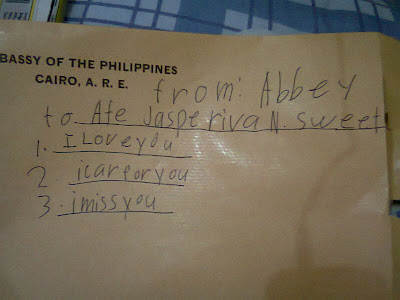 BASSY OF THE PHILIPPINES
CAIRO, A. R. E.
from: Abbey
to Ate Jasperiva N. sweet
1. I Love you
2 icarforyou
3. i miss you